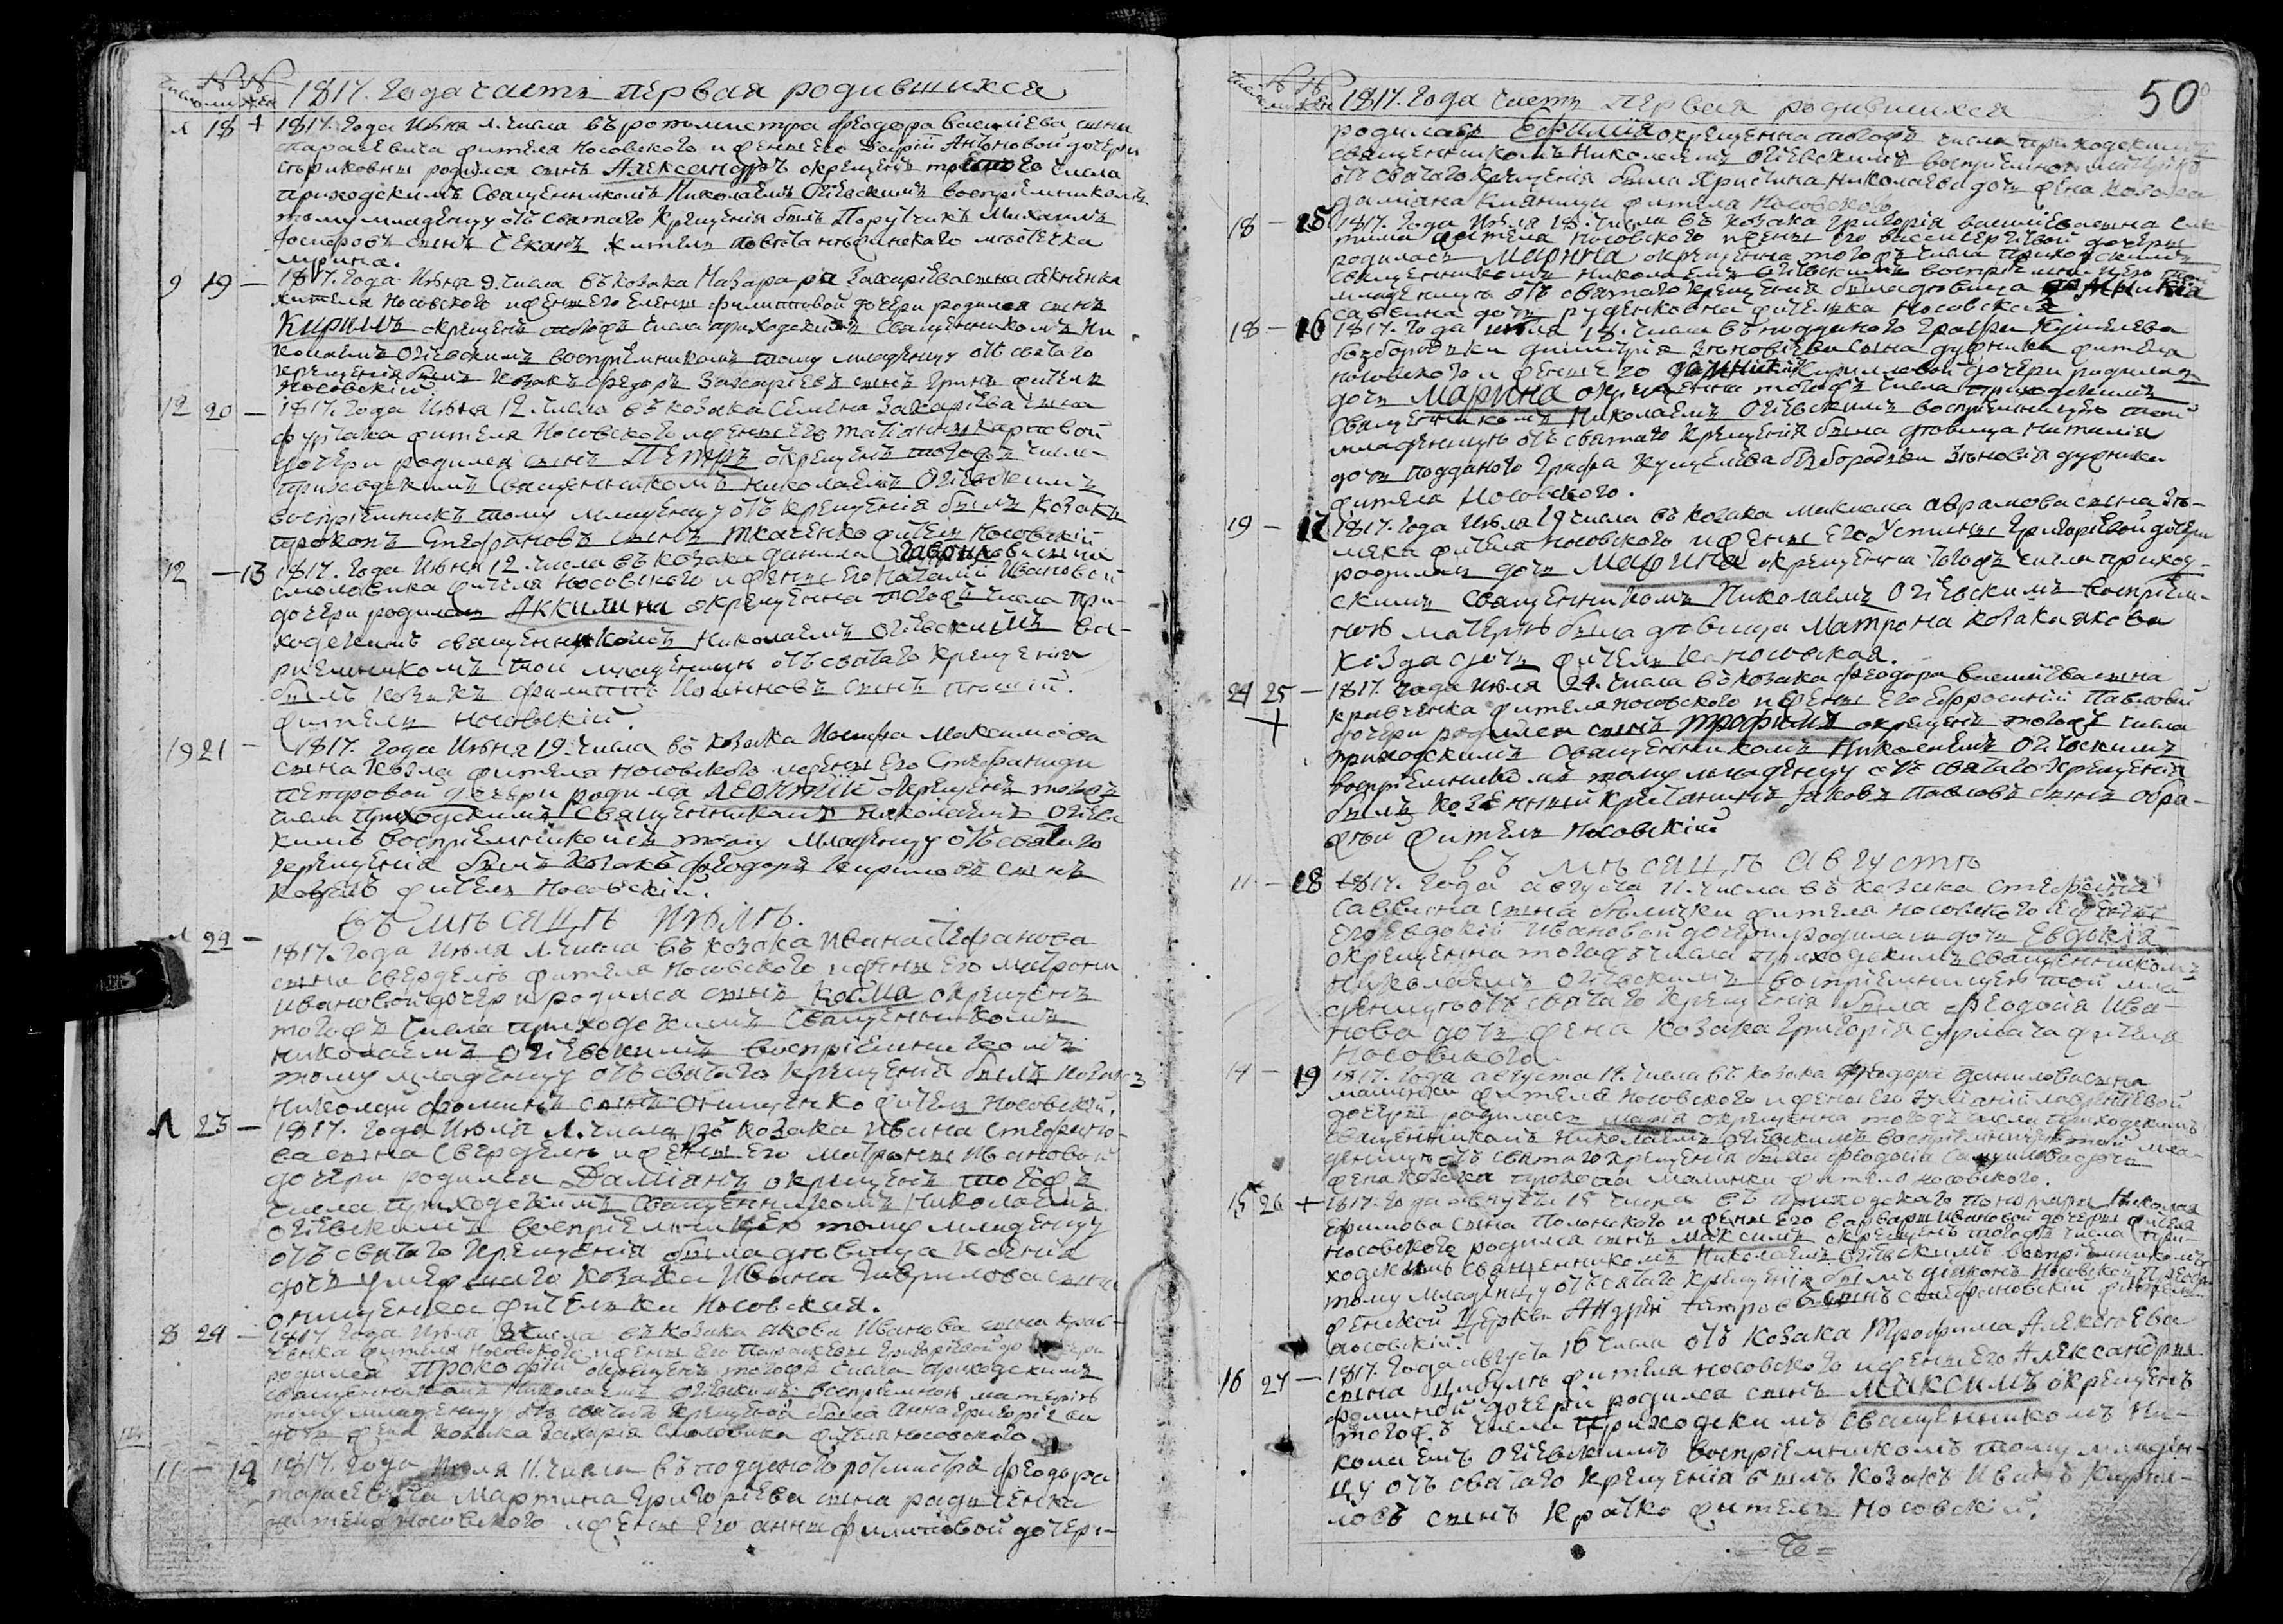 1817. Года часть первая родившихся
л 18 + 1817. Года Июня л. числа въ ротмистра Феодора Василіева сына
Тарасевича жителя Носовского и жены его Дарій Антоновой дочери
родился сынъ Александръ окрещенъ того числа
приходскимъ Священникомъ Николаемъ Огіевскимъ воспріемникомъ
тому младенцу отъ святаго крещенія былъ Поручикъ Михаилъ
сынъ житель повѣта нѣжинского мѣстечка
мрина.
9 19 — 1817. Года Июня 9. числа въ козака Назара Захаріева сына
жителя Носовского и жены его Елены Филипповой дочери родился сынъ
Кирилъ окрещенъ тогожъ числа приходскимъ Священникомъ Ни
колаемъ Огіевскимъ воспріемникомъ тому младенцу отъ святаго
крещенія былъ козакъ Федоръ Захаріевъ сынъ житель
Носовскій
12 20 — 1817. Года Июня 12 числа въ козака Семена Захаріева сына
жителя Носовского и жены его Татіаны Карповой
дочери родился сынъ Петръ окрещенъ тогожъ числа
приходскимъ священникомъ Николаемъ Огіевскимъ
воспріемникъ тому младенцу отъ крещенія былъ козакъ
Прокопъ Стефановъ сынъ Ткаченко житель Носовскій
12 — 13 1817. Года Июня 12. числа въ козака Данила Гаврилова сына
Смоловика жителя Носовского и жены его Наталій Ивановой
дочери родилась Аккилина окрещенна тогожъ числа при-
ходскимъ священникомъ Николаемъ Огіевскимъ вос-
риемникомъ той младеницѣ отъ святаго крещенія
былъ козакъ Филиппъ сынъ
житель Носовскій.
19 21 — 1817. Года Июня 19. числа въ козака Иосифа Максимова
сына Козла жителя Носовского и жены его Стефаниди
Петровой дочери родился Леонтій окрещенъ тогожъ
числа приходскимъ священникомъ Николаемъ Огіевс
кимъ воспріемникомъ тому младенцу отъ святаго
крещенія былъ козакъ Феодоръ Кириловъ сынъ
Козелъ житель Носовскій.
въ мѣсяцѣ Июлѣ.
л 22 — 1817. Года Июля л. числа въ козака Ивана Стефанова
сына Свердель жителя Носовского и жены его Матроны
Ивановой дочери родился сынъ Косма окрещенъ
тогожъ числа приходскимъ Священникомъ
Николаемъ Огіевскимъ воспріемникомъ
тому младенцу отъ святаго крещенія былъ козакъ
Николай Фоминъ сынъ Онищенко житель Носовскій.
л 23 — 1817. Года Июля л. числа въ козака Ивана Стефано-
ва сына Свердель и жены его Матроны Ивановой
дочери родился Даміанъ окрещенъ тогожъ
числа приходскимъ Священникомъ Николаемъ
Огіевскимъ воспріемницею тому младенцу
отъ святаго крещенія была дѣвица Ксенія
дочь умершаго козака Ивана Гаврилова сына
онищенка жителька Носовская.
8 24 — 1817 Года Июля 8 числа въ козака Якова Иванова сына Крав-
ченка жителя Носовского и жены его Параскевы Григоріевой дочери
родился Прокофій окрещенъ тогожъ числа приходскимъ
священникомъ Николаемъ Огіевскимъ воспріемною матерію
тому младенцу отъ святаго крещенія была Анна Григоріева
дочь жена козака Захарія Смоловика жителя Носовского
11 — 14 1817. Года Июля 11. числа въ подданого ротмистра Феодора
Тарасевича Мартина Григоріева сына Радченка
жителя Носовского и жены его Анны Филиповой дочери
50
1817. Года часть Первая родившихся
родилась Ефимія окрещенна тогожъ числа приходскимъ
священникомъ Николаемъ Огіевскимъ воспріемною матерію
отъ святаго крещенія была Христина Николаева дочь жена козака
Даміана жителя Носовского
18 — 15 1817. Года Июля 18. числа въ козака Григорія Василіева сына
жителя Носовского и жены его Вассы Сергіевой дочери
родилась Марина окрещенна тогожъ числа приходскимъ
священникомъ Николаемъ Огіевскимъ воспріемницею той
младеницѣ отъ святаго крещенія была дѣвица
Саввина дочь Руденковна жителька Носовская
18 — 16 1817. Года Июля 18. числа въ подданого Графа Кушелева
Безбородки Димитрія Зѣновіева сына Дудника жителя
Носовского и жены его Кириловой дочери родилась
дочь Марина окрещенна тогожъ числа приходскимъ
священникомъ Николаемъ Огіевскимъ воспріемницею той
младеницѣ отъ святаго крещенія была дѣвица Наталія
дочь подданого Графа Кушелева Безбородки Зѣновія Дудника
жителя Носовского.
19 — 17 1817. Года Июля 19 числа въ козака Максима Аврамова сына
жителя Носовского и жены его Устины Григоріевой дочери
родилась дочь Марина окрещенна тогожъ числа приход-
скимъ священникомъ Николаемъ Огіевскимъ воспріем-
ною матерію была дѣвица Матрона козака Якова
Козла дочь жителька Носовская.
24 25 — + 1817. Года Июля 24. числа въ козака Феодора Василіева сына
Кравченка жителя Носовского и жены его Ефросиній Павловой
дочери родился сынъ Трофимъ окрещенъ тогожъ числа
приходскимъ Священникомъ Николаемъ Огіевскимъ
воспріемникомъ тому младенцу отъ святаго крещенія
былъ козенный крестянинъ Яковъ Павловъ сынъ
житель Носовскій
въ мѣсяцѣ августѣ
11 — 18 1817. Года августа 11. числа въ козака Стефана
Саввина сына Бѣлички жителя Носовского и жены
его Евдокій Ивановой дочери родилась дочь Евдокія
окрещенна тогожъ числа приходскимъ священникомъ
Николаемъ Огіевскимъ воспріемницею той мла-
деницѣ отъ святаго крещенія была Феодосія Ива-
нова дочь жена козака Григорія Сурмача жителя
Носовского.
14 — 19 1817. Года августа 14. числа въ козака Феодора Данилова сына
Малинки жителя Носовского и жены его Іуліаній Лаврентіевой
дочери родилась Марія окрещенна тогожъ числа приходскимъ
священникомъ Николаемъ Огіевскимъ воспріемницею той мла-
деницѣ отъ святаго крещенія была Феодосія Самуилова дочь
жена козака Прокопа Малинки жителя Носовского.
15 26 + 1817. Года августа 15 числа въ приходскаго пономаря Николая
Ефимова сына Полонского и жены его Варвары Ивановой дочери жителя
Носовского родился сынъ Максимъ окрещенъ тогожъ числа при-
ходскимъ священникомъ Николаемъ Огіевскимъ воспріемникомъ
тому младенцу отъ святаго крещенія былъ діяконъ Носовской Преобра-
женской Церкви Андрей Петровъ сынъ Стефановскій житель
Носовскій.
16 27 — 1817. Года августа 16 числа отъ козака Трофима Алексѣева
сына Цибулѣ жителя Носовского и жены его Александры
Фоминой дочери родился сынъ Максимъ окрещенъ
тогожъ числа приходскимъ священникомъ Ни-
колаемъ Огіевскимъ воспріемникомъ тому младен-
цу отъ святаго крещенія былъ козакъ Иванъ Кири-
ловъ сынъ Кратко житель Носовскій.